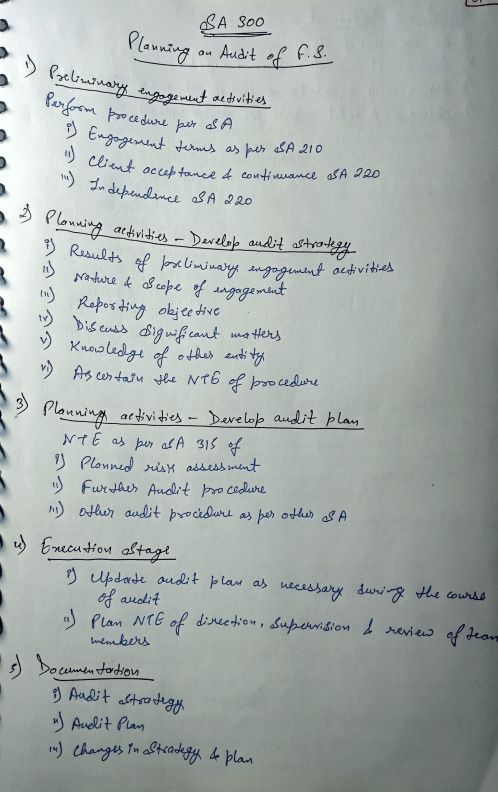 SA 300
Planning an Audit of F.S.
1) Preliminary engagement activities
Perform procedure per SA
i) Engagement terms as per SA 210
ii) Client acceptance & continuance SA 220
iii) Independence SA 220
2) Planning activities - Develop audit strategy
i) Results of preliminary engagement activities
ii) Nature & Scope of engagement
iii) Reporting objective
iv) Discuss significant matters
v) Knowledge of other entity
vi) Ascertain the NTE of procedure
3) Planning activities - Develop audit plan
NTE as per SA 315 of
i) Planned risk assessment
ii) Further Audit procedure
iii) Other audit procedure as per other SA
4) Execution Stage
i) Update audit plan as necessary during the course
of audit
ii) Plan NTE of direction, Supervision & review of team
members
5) Documentation
i) Audit strategy
ii) Audit Plan
iii) Changes in strategy & plan